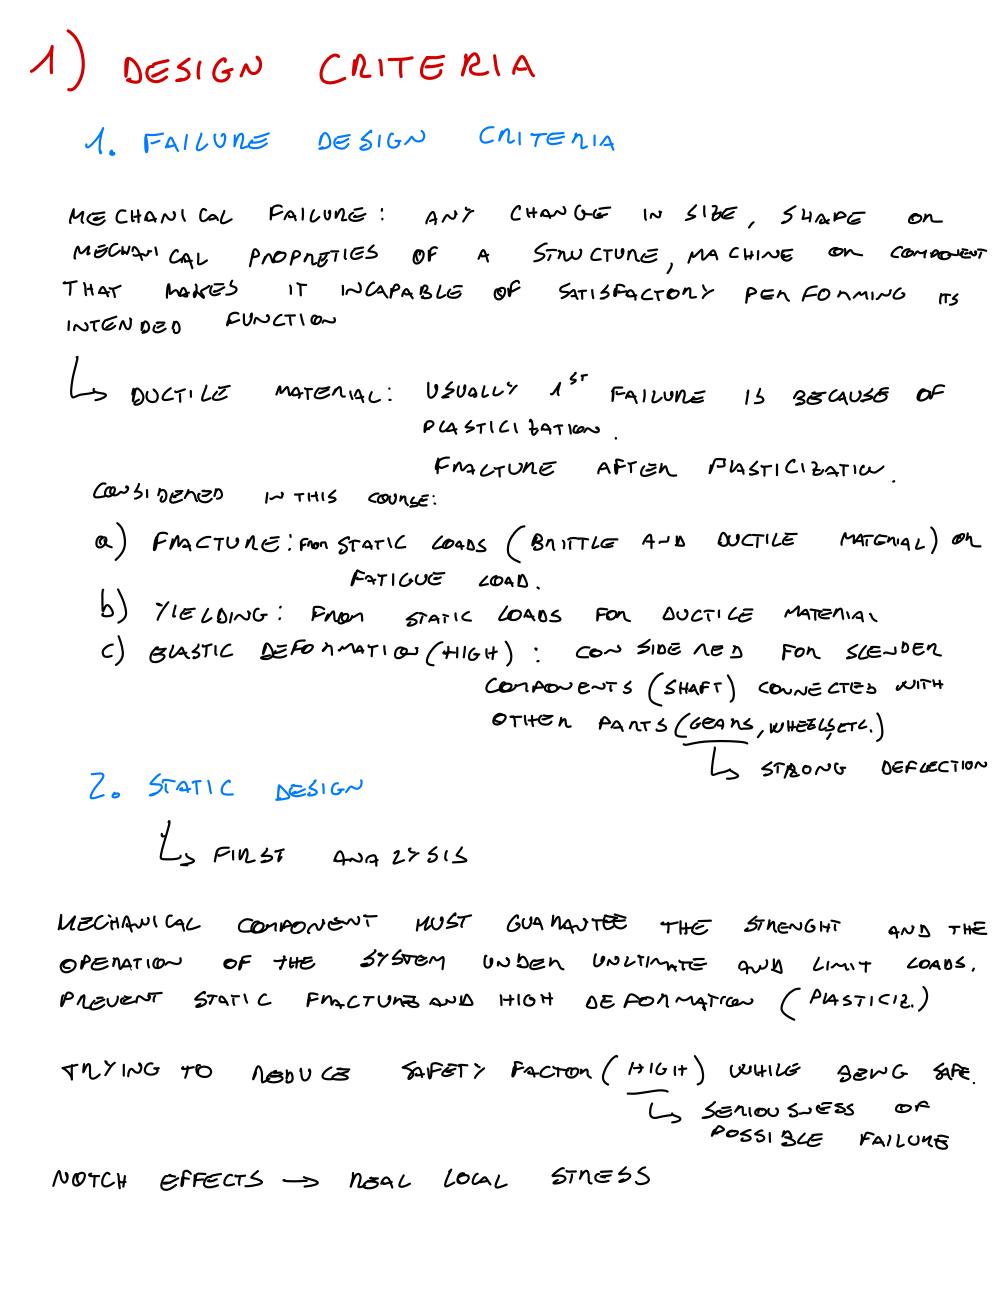 1) DESIGN CRITERIA
1. FAILURE DESIGN CRITERIA
MECHANICAL FAILURE: ANY CHANGE IN SIZE, SHAPE OR
MECHANICAL PROPRETIES OF A STRUCTURE, MACHINE OR COMPONENT
THAT MAKES IT INCAPABLE OF SATISFACTORY PERFORMING ITS
INTENDED FUNCTION
↳ DUCTILE MATERIAL: USUALLY 1ST FAILURE IS BECAUSE OF
PLASTICIZATION.
FRACTURE AFTER PLASTICIZATION.
CONSIDERED IN THIS COURSE:
a) FRACTURE: FROM STATIC LOADS (BRITTLE AND DUCTILE MATERIAL) OR
FATIGUE LOAD.
b) YIELDING: FROM STATIC LOADS FOR DUCTILE MATERIAL
c) ELASTIC DEFORMATION (HIGH): CONSIDERED FOR SLENDER
COMPONENTS (SHAFT) CONNECTED WITH
OTHER PARTS (GEARS, WHEELS, ETC.)
↳ STRONG DEFLECTION
2. STATIC DESIGN
↳ FIRST ANALYSIS
MECHANICAL COMPONENT MUST GUARANTEE THE STRENGHT AND THE
OPERATION OF THE SYSTEM UNDER UNLTIMATE AND LIMIT LOADS.
PREVENT STATIC FRACTURE AND HIGH DEFORMATION (PLASTICIZ.)
TRYING TO REDUCE SAFETY FACTOR (HIGH) WHILE BEING SAFE.
↳ SERIOUSNESS OF
POSSIBLE FAILURE
NOTCH EFFECTS → REAL LOCAL STRESS